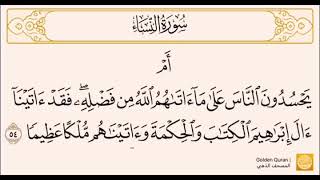 سُورَةُ النِّسَاءِ
أَمْ
يَحْسُدُونَ ٱلنَّاسَ عَلَىٰ مَآ ءَاتَىٰهُمُ ٱللَّهُ مِن فَضْلِهِۦۖ فَقَدْ ءَاتَيْنَآ
ءَالَ إِبْرَٰهِيمَ ٱلْكِتَٰبَ وَٱلْحِكْمَةَ وَءَاتَيْنَٰهُم مُّلْكًا عَظِيمًا ٥٤
Golden Quran |
المصحف الذهبي